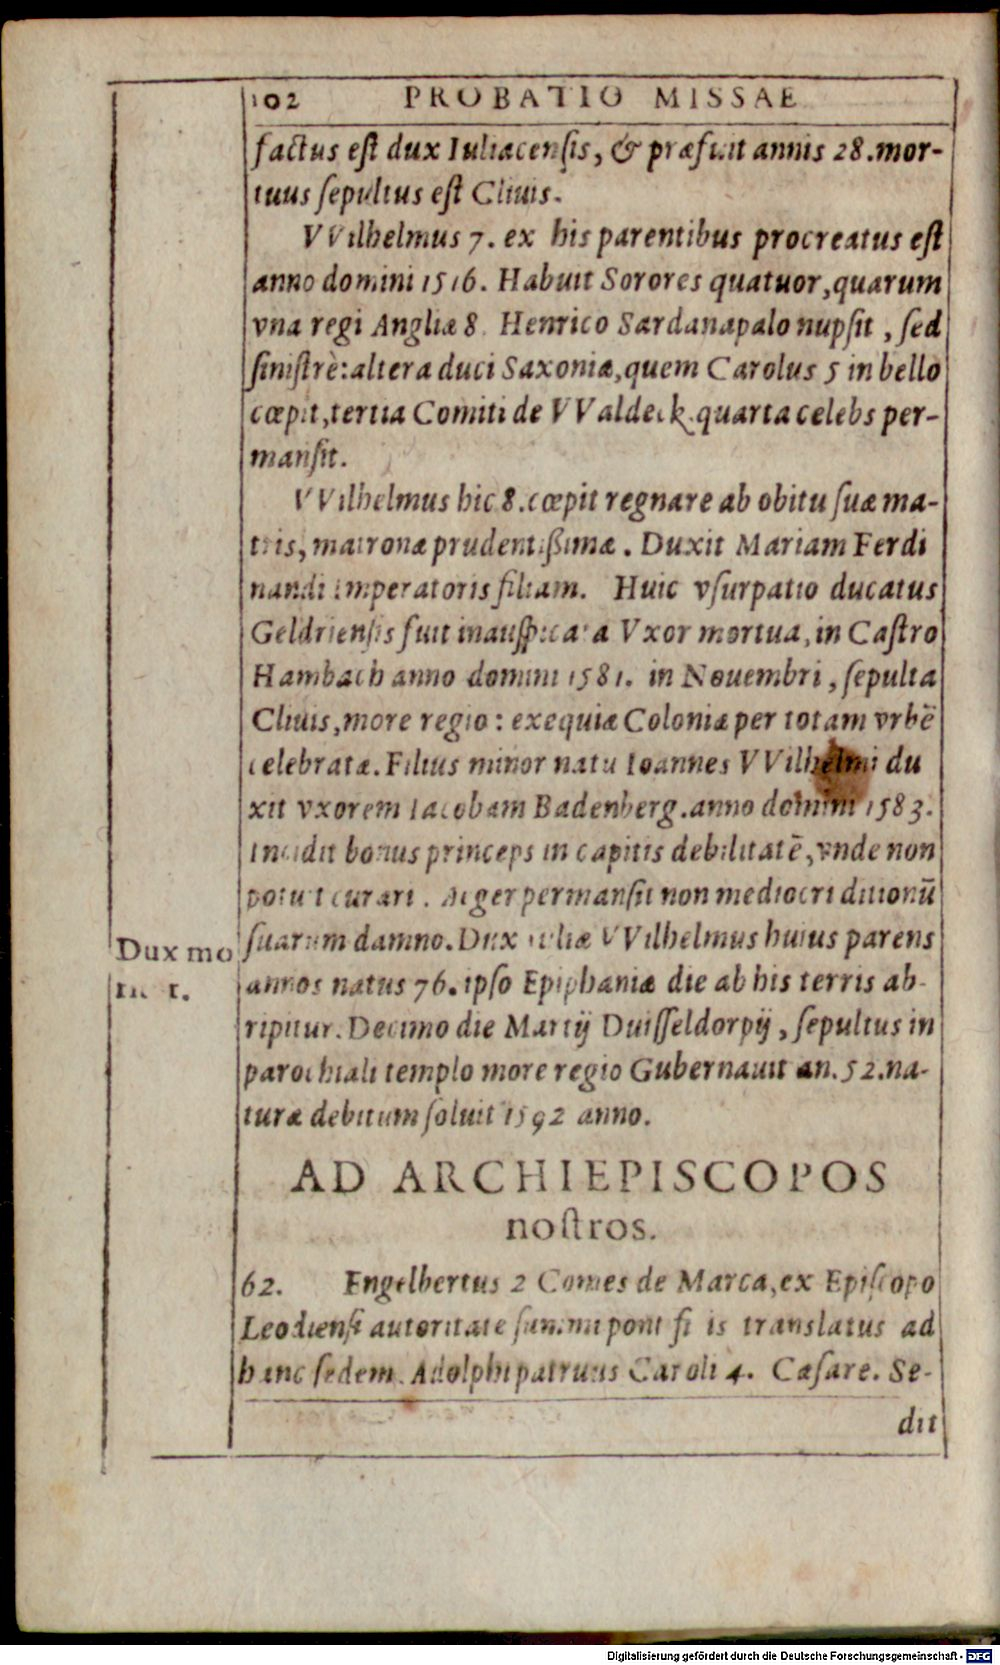 102 PROBATIO MISSAE
factus eſt dux Iuliacenſis, & præfuit annis 28. mor-
tuus ſepultus eſt Cliuis.
VVilhelmus 7. ex his parentibus procreatus eſt
anno domini 1516. Habuit Sorores quatuor, quarum
vna regi Angliæ 8. Henrico Sardanapalo nupſit, ſed
ſiniſtrè: altera duci Saxoniæ, quem Carolus 5 in bello
cœpit, tertia Comiti de VValdeck. quarta celebs per-
manſit.
VVilhelmus hic 8. cœpit regnare ab obitu ſuæ ma-
tris, matronæ prudentißimæ. Duxit Mariam Ferdi
nandi imperatoris filiam. Huic vſurpatio ducatus
Geldrienſis fuit inauſpicata Vxor mortua, in Caſtro
Hambach anno domini 1581. in Nouembri, ſepulta
Cliuis, more regio: exequiæ Coloniæ per totam vrbē
celebratæ. Filius minor natu Ioannes VVilhelmi du
xit vxorem Iacobam Badenberg. anno domini 1583.
Incidit bonus princeps in capitis debilitatē, vnde non
potuit curari. Aeger permanſit non mediocri ditionū
ſuarum damno. Dux Iuliæ VVilhelmus huius parens
Dux mo
ritur.
annos natus 76. ipſo Epiphaniæ die ab his terris ab-
ripitur. Decimo die Martij Duiſſeldorpij, ſepultus in
parochiali templo more regio Gubernauit an. 52. na-
turæ debitum ſoluit 1592 anno.
AD ARCHIEPISCOPOS
noſtros.
62. Engelbertus 2 Comes de Marca, ex Epiſcopo
Leodienſi autoritate ſummi pontifi is translatus ad
hanc ſedem. Adolphi patruus Caroli 4. Cæſare. Se-
dit
Digitalisierung gefördert durch die Deutsche Forschungsgemeinschaft - DFG